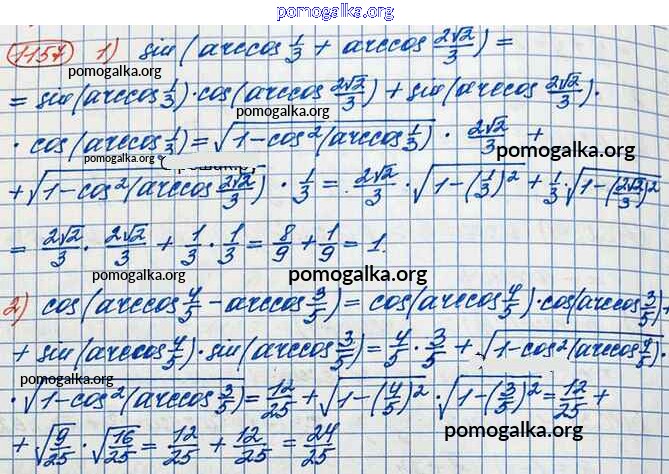 pomogalka.org
1157 1) sin(arccos 1/3 + arccos 2√2/3) =
pomogalka.org
= sin(arccos 1/3) · cos(arccos 2√2/3) + sin(arccos 2√2/3) ·
· cos(arccos 1/3) = √(1-cos²(arccos 1/3)) · 2√2/3 +
pomogalka.org
pomogalka.org
+ √(1-cos²(arccos 2√2/3)) · 1/3 = 2√2/3 · √(1-(1/3)²) + 1/3 · √(1-(2√2/3)²)
= 2√2/3 · 2√2/3 + 1/3 · 1/3 = 8/9 + 1/9 = 1.
pomogalka.org
pomogalka.org
2) cos(arccos 4/5 - arccos 3/5) = cos(arccos 4/5) · cos(arccos 3/5) +
pomogalka.org
+ sin(arccos 4/5) · sin(arccos 3/5) = 4/5 · 3/5 + √(1-cos²(arccos 4/5)) ·
pomogalka.org
· √(1-cos²(arccos 3/5)) = 12/25 + √(1-(4/5)²) · √(1-(3/5)²) = 12/25 +
+ √(9/25) · √(16/25) = 12/25 + 12/25 = 24/25
pomogalka.org